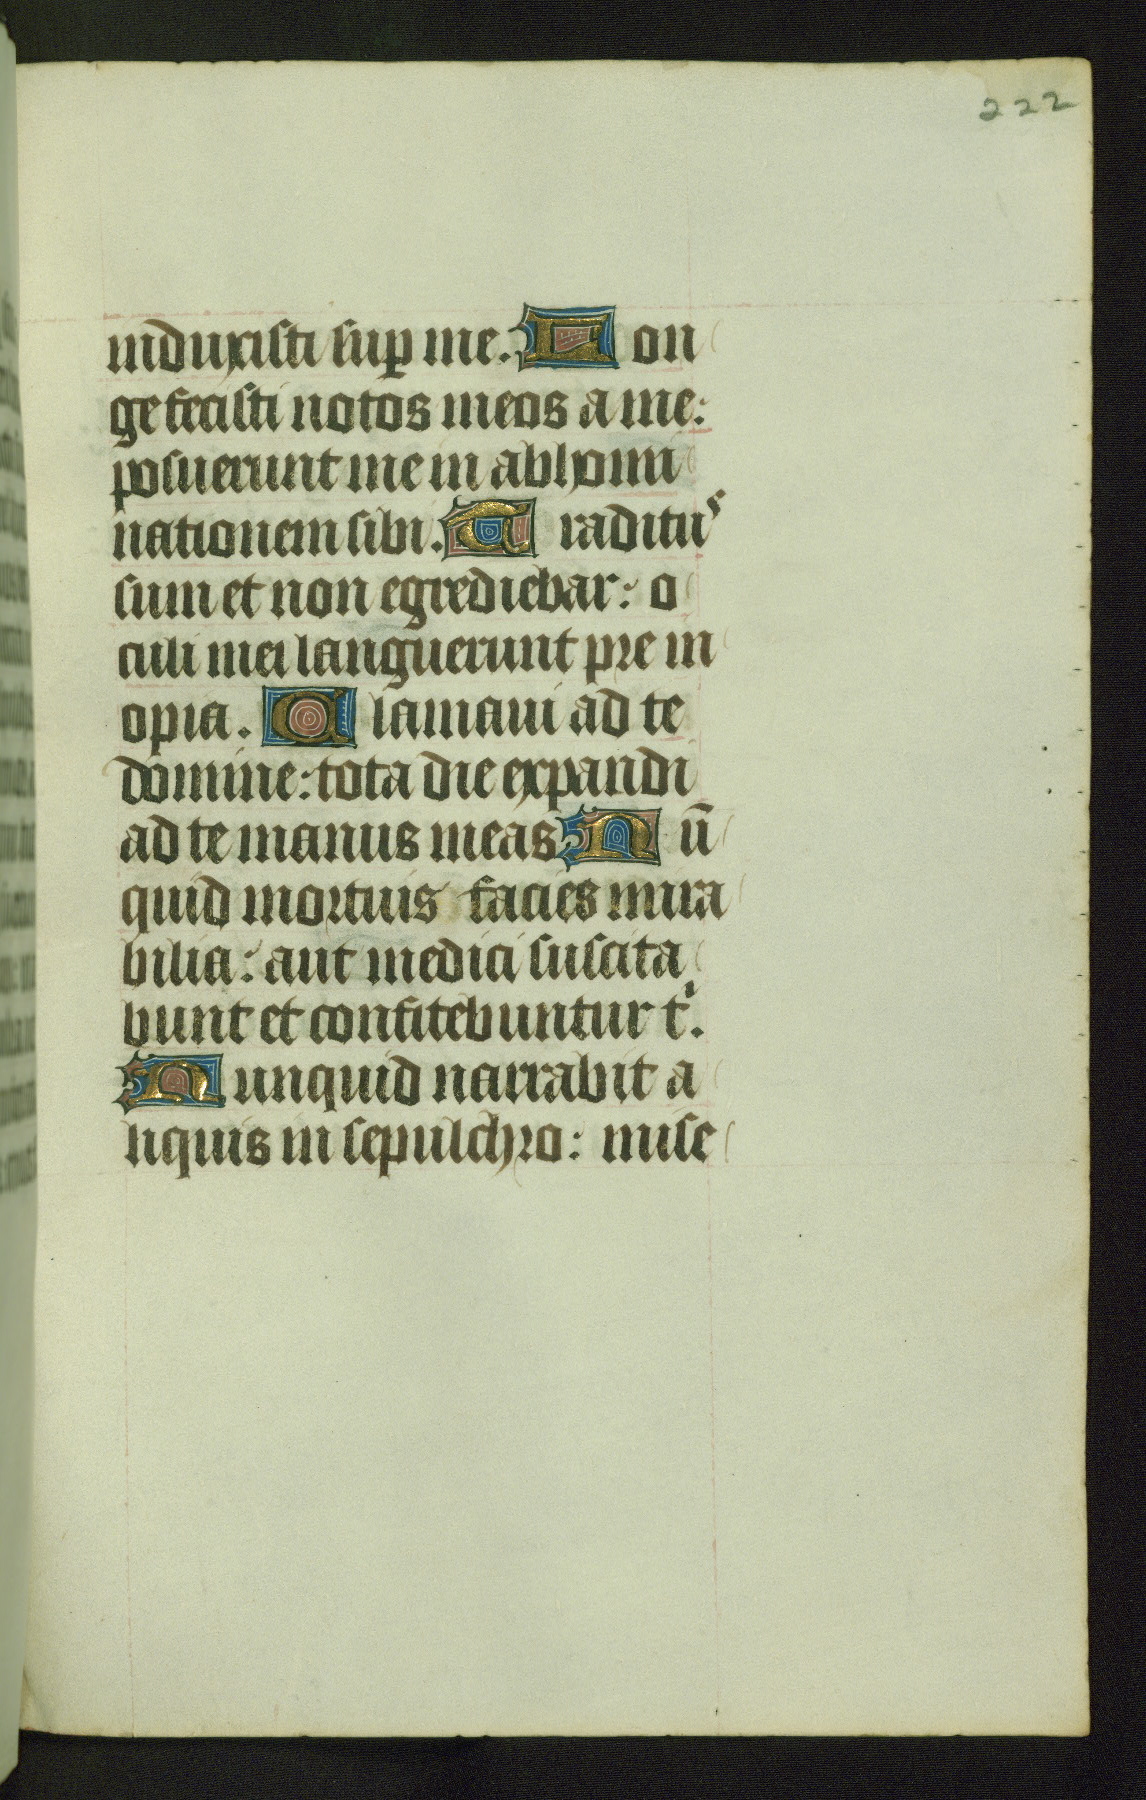 222
induxisti sup̱ me. Lon
ge fecisti notos meos a me:
posuerunt me in abhomi
nationem sibi. Traditus
sum et non egrediebar: o
culi mei languerunt pre in
opia. Clamaui ad te
domine: tota die expandi
ad te manus meas Nū
quid mortuis facies mira
bilia: aut medici suscita
bunt et confitebuntur tⁱ.
Nunquid narrabit a
liquis in sepulchro: mise